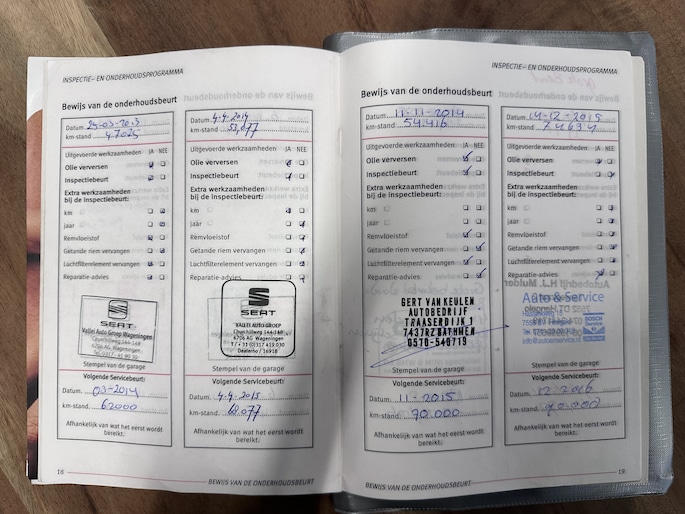 INSPECTIE- EN ONDERHOUDSPROGRAMMA
Bewijs van de onderhoudsbeurt
Datum 25-03-2013
km-stand 47025
Uitgevoerde werkzaamheden JA NEE
Olie verversen
Inspectiebeurt
Extra werkzaamheden
bij de inspectiebeurt:
km
jaar
Remvloeistof
Getande riem vervangen
Luchtfilterelement vervangen
Reparatie-advies
SEAT
Vallei Auto Groep Wageningen
Churchillweg 144-148
6706 AG Wageningen
Stempel van de garage
Volgende Servicebeurt:
Datum 03-2014
km-stand 62000
Afhankelijk van wat het eerst wordt
bereikt.
Datum 4-4-2014
km-stand 53,077
Uitgevoerde werkzaamheden JA NEE
Olie verversen
Inspectiebeurt
Extra werkzaamheden
bij de inspectiebeurt:
km
jaar
Remvloeistof
Getande riem vervangen
Luchtfilterelement vervangen
Reparatie-advies
SEAT
VALLEI AUTO GROEP
Churchillweg 144-148
6706 AG Wageningen
T / + 31 (0)317 419 030
Dealerno / 16918
Stempel van de garage
Volgende Servicebeurt:
Datum 4-4-2015
km-stand 68,077
Afhankelijk van wat het eerst wordt
bereikt.
18
BEWIJS VAN DE ONDERHOUDSBEURT
INSPECTIE- EN ONDERHOUDSPROGRAMMA
Bewijs van de onderhoudsbeurt
Datum 11-11-2014
km-stand 54.416
Uitgevoerde werkzaamheden JA NEE
Olie verversen
Inspectiebeurt
Extra werkzaamheden
bij de inspectiebeurt:
km
jaar
Remvloeistof
Getande riem vervangen
Luchtfilterelement vervangen
Reparatie-advies
GERT VAN KEULEN
AUTOBEDRIJF
TRAASTERDIJK 1
7437RZ BATHMEN
0570-540719
Stempel van de garage
Volgende Servicebeurt:
Datum 11-2015
km-stand 70.000
Afhankelijk van wat het eerst wordt
bereikt.
Datum 14-12-2015
km-stand 74634
Uitgevoerde werkzaamheden JA NEE
Olie verversen
Inspectiebeurt
Extra werkzaamheden
bij de inspectiebeurt:
km
jaar
Remvloeistof
Getande riem vervangen
Luchtfilterelement vervangen
Reparatie-advies
Autobedrijf H.J. Mulder
Auto & Service
BOSCH
Service
Stempel van de garage
Volgende Servicebeurt:
Datum 12-2016
km-stand 90.000
Afhankelijk van wat het eerst wordt
bereikt.
BEWIJS VAN DE ONDERHOUDSBEURT
19